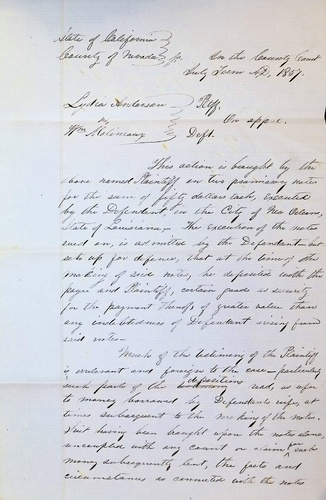 State of California
County of Nevada } ss. In the County Court
July Term A.D. 1857.
Lydia Anderson Plff.
vs On appeal
Wm Molineaux Deft.
This action is brought by the
above named Plaintiff, on two promissory notes
for the sum of fifty dollars each, executed
by the Defendant, in the City of New Orleans,
State of Louisiana. The execution of the notes
sued on, is admitted by the Defendant but
sets up for defence, that at the time of the
making of said notes, he deposited with the
payee and Plaintiff, certain goods as security
for the payment thereof, of greater value than
any indebtedness of Defendant arising from
said notes.
Much of the testimony of the Plaintiff
is irrelevant and foreign to the case particularly
such parts of the depositions read, as refer
to money borrowed by Defendants wife, at
times subsequent to the making of the notes.
Suit having been brought upon the notes alone,
uncoupled with any count or claim for such
money subsequently lent, the facts and
circumstances as connected with the notes